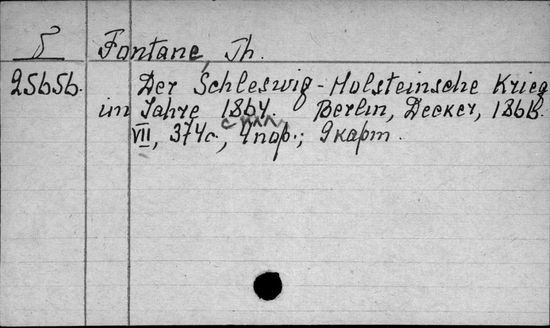 Б Fontane, Th.
25656. Der Schleswig-Holsteinsche Krieg
im Jahre 1864. Berlin, Decker, 1866.
с илл.
VII, 374с., 4 пор.; 9 карт.